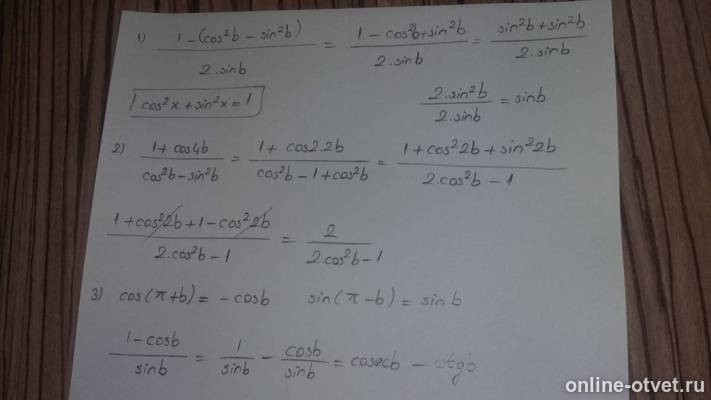 1) (1-(cos²b - sin²b))/(2·sinb) = (1-cos²b+sin²b)/(2·sinb) = (sin²b+sin²b)/(2·sinb)
cos²x + sin²x = 1
(2·sin²b)/(2·sinb) = sinb
2) (1+cos4b)/(cos²b-sin²b) = (1+cos2·2b)/(cos²b-1+cos²b) = (1+cos²2b+sin²2b)/(2·cos²b-1)
(1+cos²2b+1-cos²2b)/(2·cos²b-1) = 2/(2·cos²b-1)
3) cos(π+b) = -cosb sin(π-b) = sinb
(1-cosb)/sinb = 1/sinb - cosb/sinb = cosecb - ctgb
online-otvet.ru